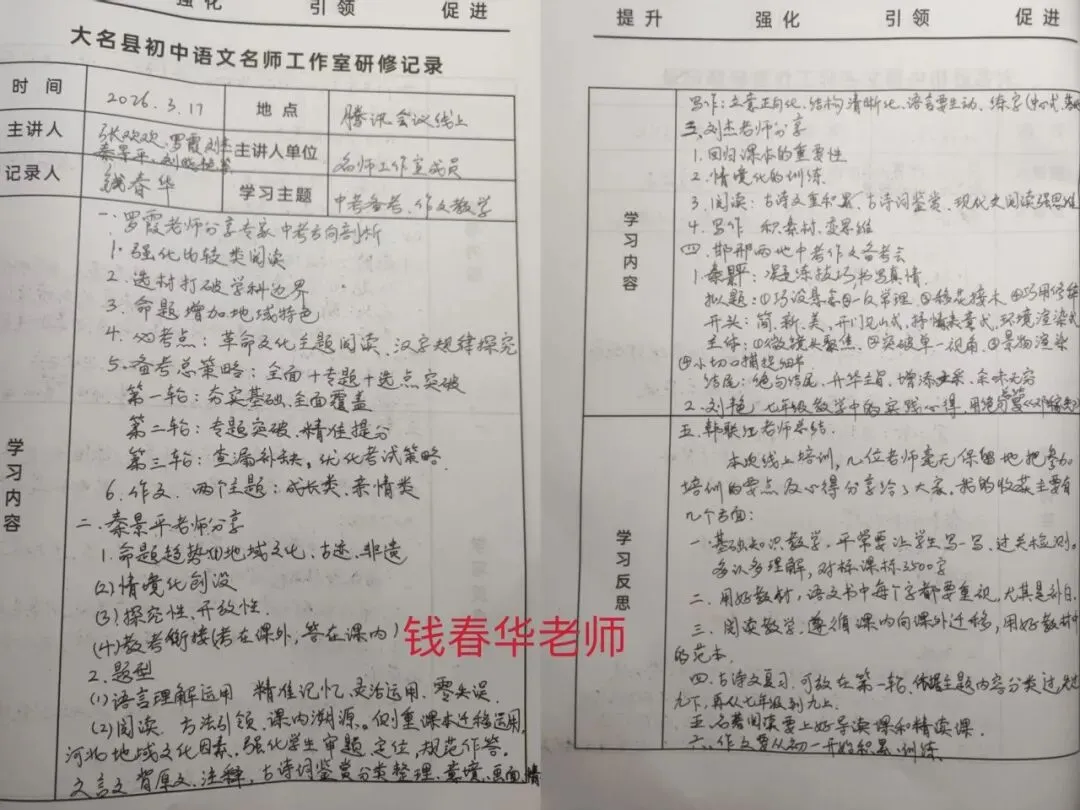 强化 引领 促进
大名县初中语文名师工作室研修记录
时间 2026.3.17 地点 腾讯会议线上
主讲人 张欢欢、罗霞 刘杰
秦景平、刘艳艳等 主讲人单位 名师工作室成员
记录人 钱春华 学习主题 中考备考、作文教学
学习内容
一、罗霞老师分享专家中考方向剖析
1. 强化比较类阅读
2. 选材打破学科边界
3. 命题增加地域特色
4. 必考点:革命文化主题阅读、汉字规律探究
5. 备考总策略:全面+专题+选点突破
第一轮:夯实基础、全面覆盖
第二轮:专题突破、精准提分
第三轮:查漏补缺,优化考试策略.
6. 作文、两个主题:成长类、亲情类
二、秦景平老师分享
1. 命题趋势(1)地域文化、古迹、非遗
(2)情境化创设
(3)探究性、开放性.
(4)教考衔接(考在课外,答在课内)
2. 题型
(1)语言理解运用 精准记忆、灵活运用、零失误
(2)阅读 方法引领、课内溯源。侧重课本迁移运用,
河北地域文化因素、强化学生审题、定位,规范作答。
文言文 背原文、注释,古诗词鉴赏分类整理、意境、画面、情
钱春华老师
提升 强化 引领 促进
学习内容
写作:立意正向化、结构清晰化、语言要生动、练字
三、刘杰老师分享
1. 回归课本的重要性
2. 情境化的训练.
3. 阅读:古诗文重积累、古诗词鉴赏、现代文阅读强思维
4. 写作 积素材、变思维
四、邯邢两地中考作文备考会
1. 秦景平:凝练技巧书写真情.
拟题:①巧设悬念②反常理 ③移花接木 ④巧用修辞
开头:简、新、美、开门见山式,抒情表意式,环境渲染式
主体:①微镜头聚焦、②突破单一视角、③景物渲染
④小切口捕捉细节
结尾:绝句结尾、升华主旨、增添文采、余味无穷
2. 刘艳 七年级教学中的实践心得.
学习反思
五、韩联江老师总结.
本次线上培训,几位老师毫无保留地把参加
培训的要点及心得分享给了大家.我的收获主要有
几个方面:
一、基础知识教学,平常要让学生写一写、过关检测。
多认多理解,对标课标3500字
二、用好教材,语文书中每个字都要重视,尤其是补白.
三、阅读教学、遵循课内向课外迁移,用好教材中
的范本.
四、古诗文复习、可放在第一轮、依据主题内容分类过,先过
九下,再从七年级到九上.
五、名著阅读要上好导读课和精读课.
六、作文要从初一开始积累、训练.